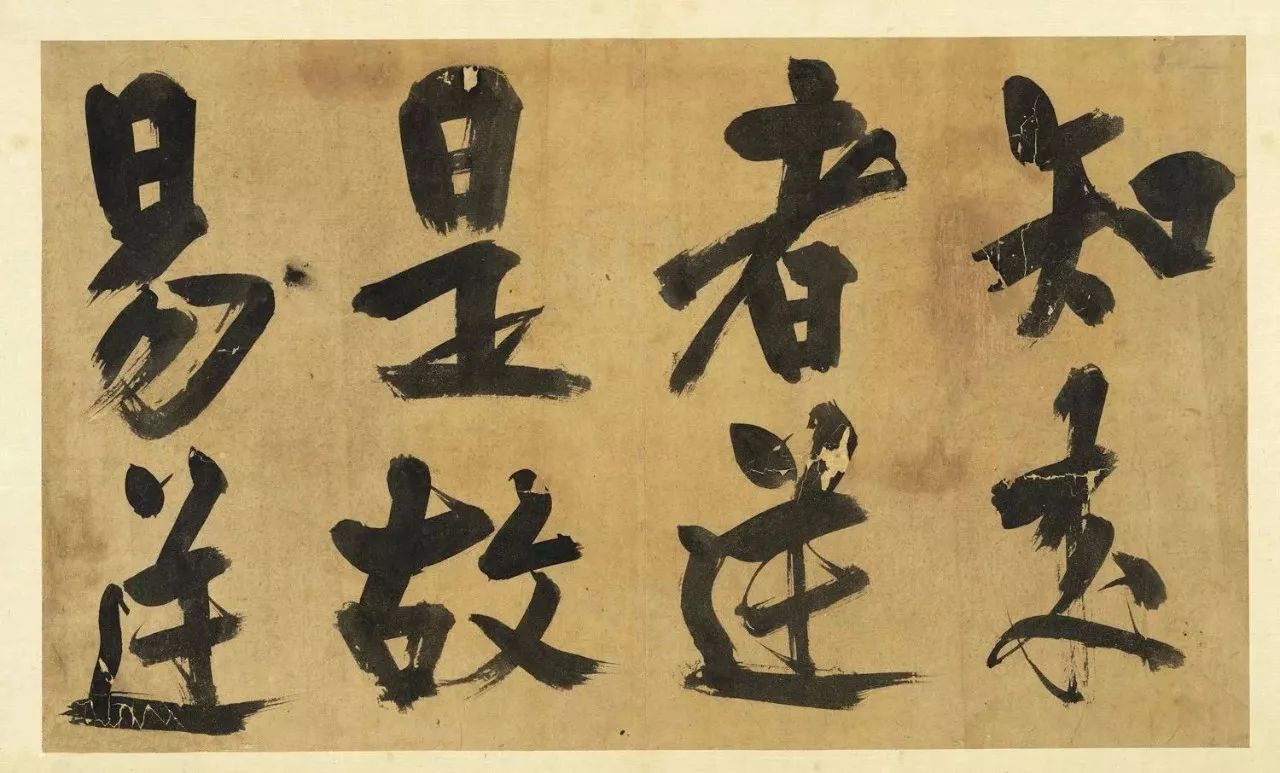 知來
者逆
是故
易逆